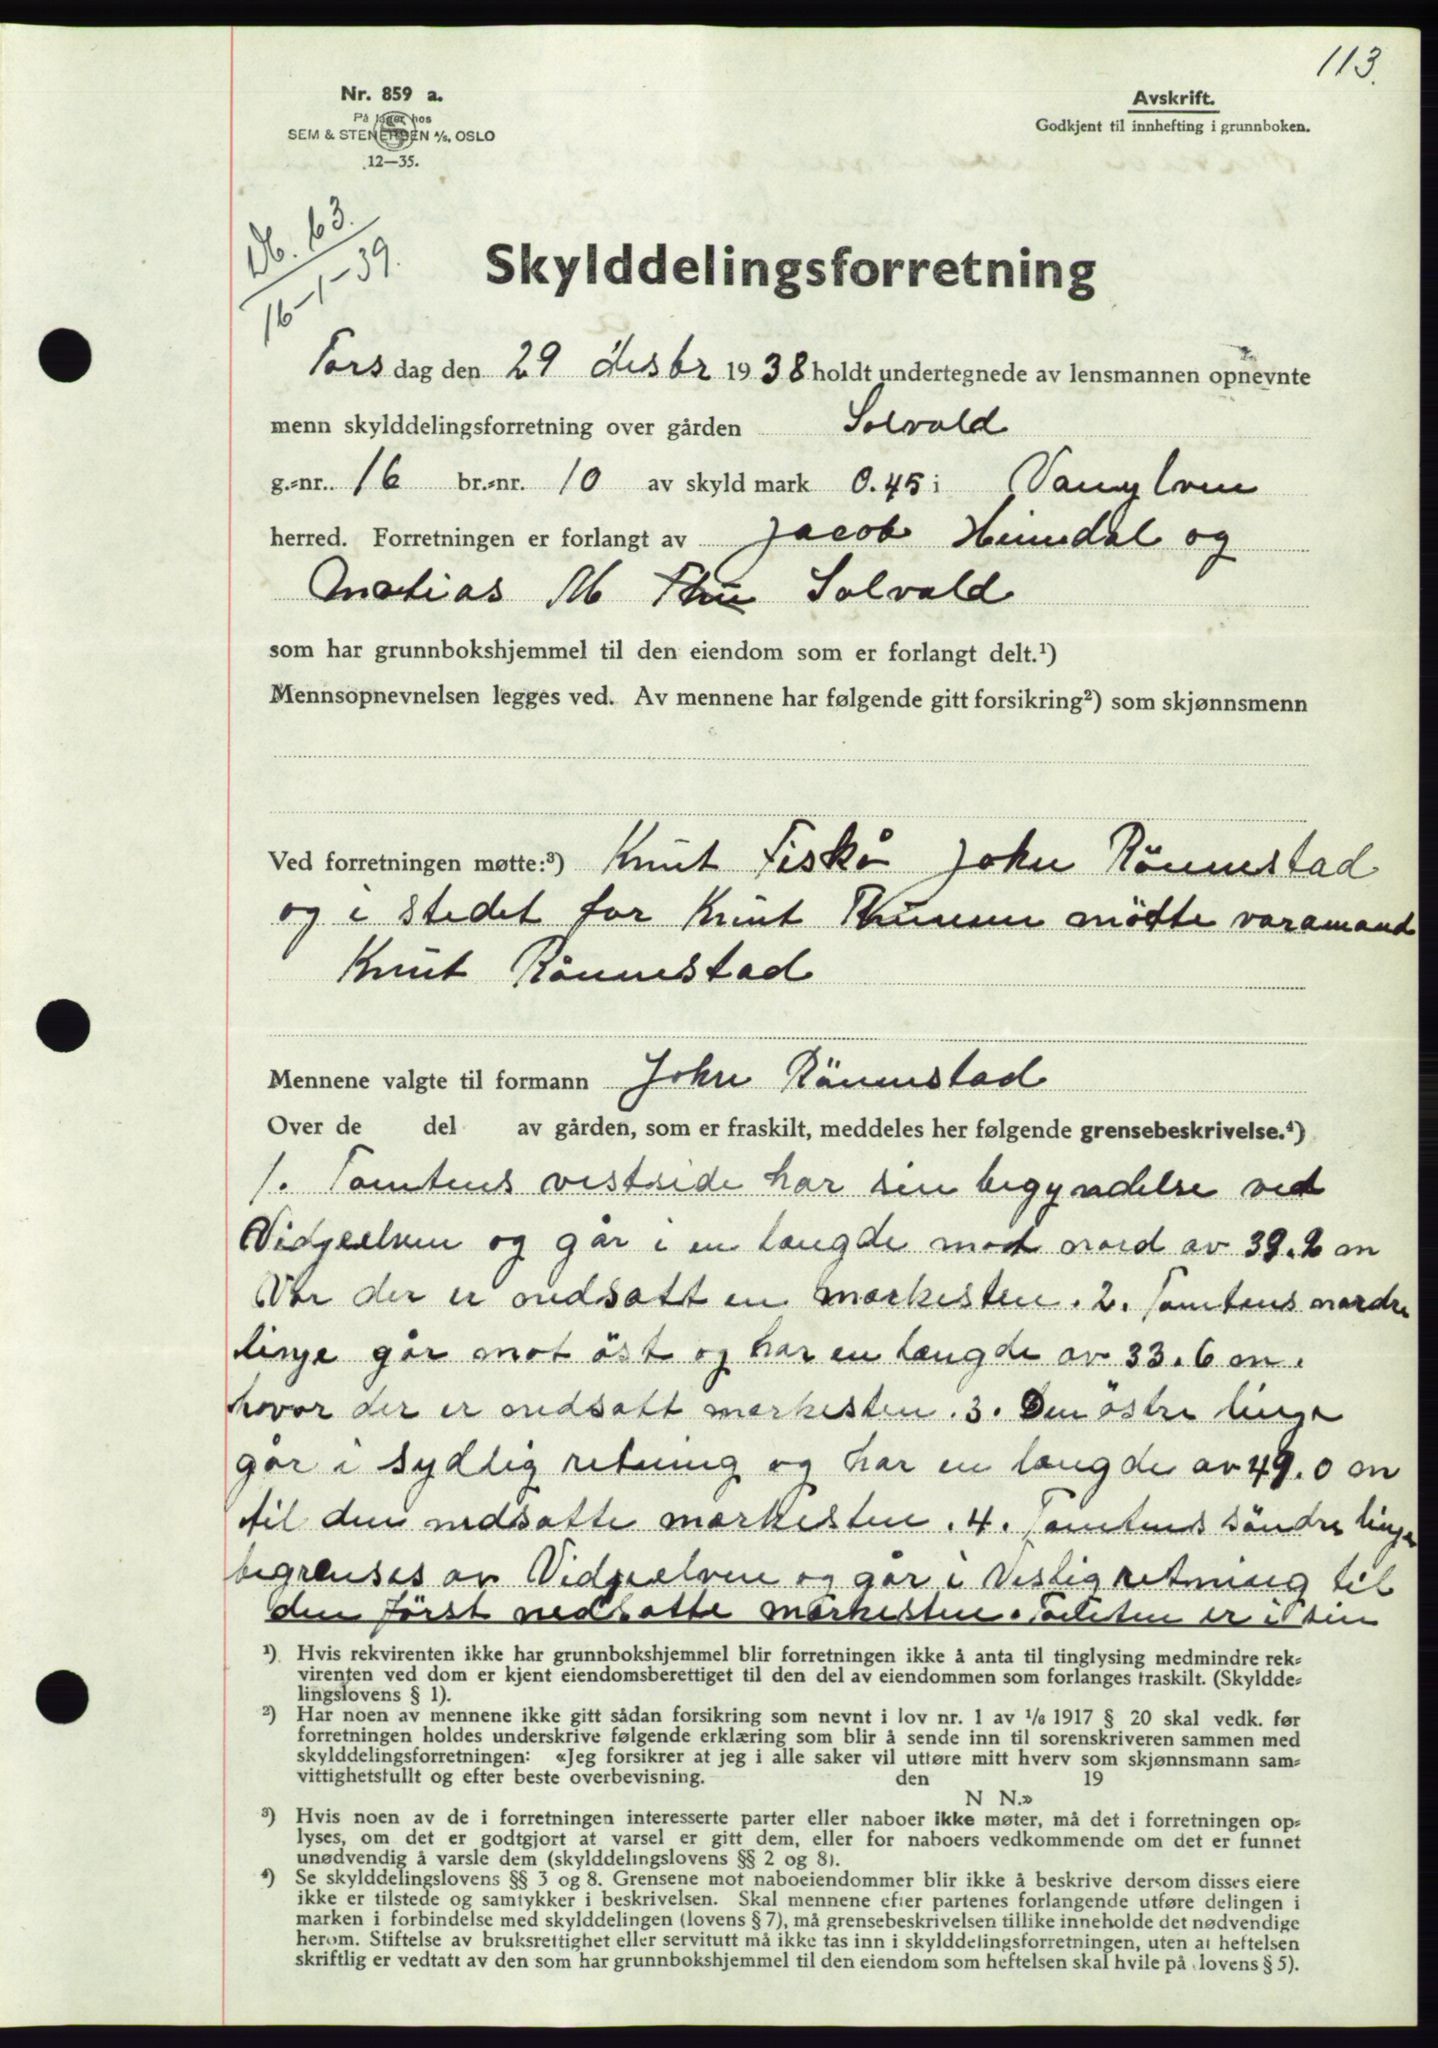 113.
Nr. 859 a.
På lager hos
SEM & STENERSEN A/S. OSLO
12—35.
Avskrift.
Godkjent til innhefting i grunnboken.
Nb. 63.
16-1-39.
Skylddelingsforretning
Torsdag den 29 desbr 1938 holdt undertegnede av lensmannen opnevnte
menn skylddelingsforretning over gården Solvold
g.-nr. 16 br.-nr. 10 av skyld mark 0.45 i Vanylven
herred. Forretningen er forlangt av Jacob Heimdal og
Matias M Thu Solvold
som har grunnbokshjemmel til den eiendom som er forlangt delt.¹)
Mennsopnevnelsen legges ved. Av mennene har følgende gitt forsikring²) som skjønnsmenn
Ved forretningen møtte:³) Knut Fiskå John Rönnestad
og i stedet for Knut Thunem mötte varamand
Knut Rönnestad
Mennene valgte til formann John Rönnestad
Over de del av gården, som er fraskilt, meddeles her følgende grensebeskrivelse.⁴)
1. Tomtens vestside har sin begyndelse ved
Vidjeelven og går i en længde mot nord av 39.2 m
Vor der er nedsatt en merkesten. 2. Tomtens nordre
linje går mot öst og har en længde av 33.6 m.
hvor der er nedsatt merkesten. 3. Den östre linje
går i sydlig retning og har en længde av 49.0 m
til den nedsatte merkesten. 4. Tomtens söndre linje
begrenses av Vidjeelven og går i Vestlig retning til
den först nedsatte merkesten. Tomten er i sin
¹) Hvis rekvirenten ikke har grunnbokshjemmel blir forretningen ikke å anta til tinglysing medmindre rek-
virenten ved dom er kjent eiendomsberettiget til den del av eiendommen som forlanges fraskilt. (Skyldde-
lingslovens § 1).
²) Har noen av mennene ikke gitt sådan forsikring som nevnt i lov nr. 1 av 1/6 1917 § 20 skal vedk. før
forretningen holdes underskrive følgende erklæring som blir å sende inn til sorenskriveren sammen med
skylddelingsforretningen: «Jeg forsikrer at jeg i alle saker vil utføre mitt hverv som skjønnsmann sam-
vittighetsfullt og efter beste overbevisning. den 19
N N.»
³) Hvis noen av de i forretningen interesserte parter eller naboer ikke møter, må det i forretningen op-
lyses, om det er godtgjort at varsel er gitt dem, eller for naboers vedkommende om det er funnet
unødvendig å varsle dem (skylddelingslovens §§ 2 og 8).
⁴) Se skylddelingslovens §§ 3 og 8. Grensene mot naboeiendommer blir ikke å beskrive dersom disses eiere
ikke er tilstede og samtykker i beskrivelsen. Skal mennene efter partenes forlangende utføre delingen i
marken i forbindelse med skylddelingen (lovens § 7), må grensebeskrivelsen tillike inneholde det nødvendige
herom. Stiftelse av bruksrettighet eller servitutt må ikke tas inn i skylddelingsforretningen, uten at heftelsen
skriftlig er vedtatt av den som har grunnbokshjemmel til den eiendom som heftelsen skal hvile på (lovens § 5).